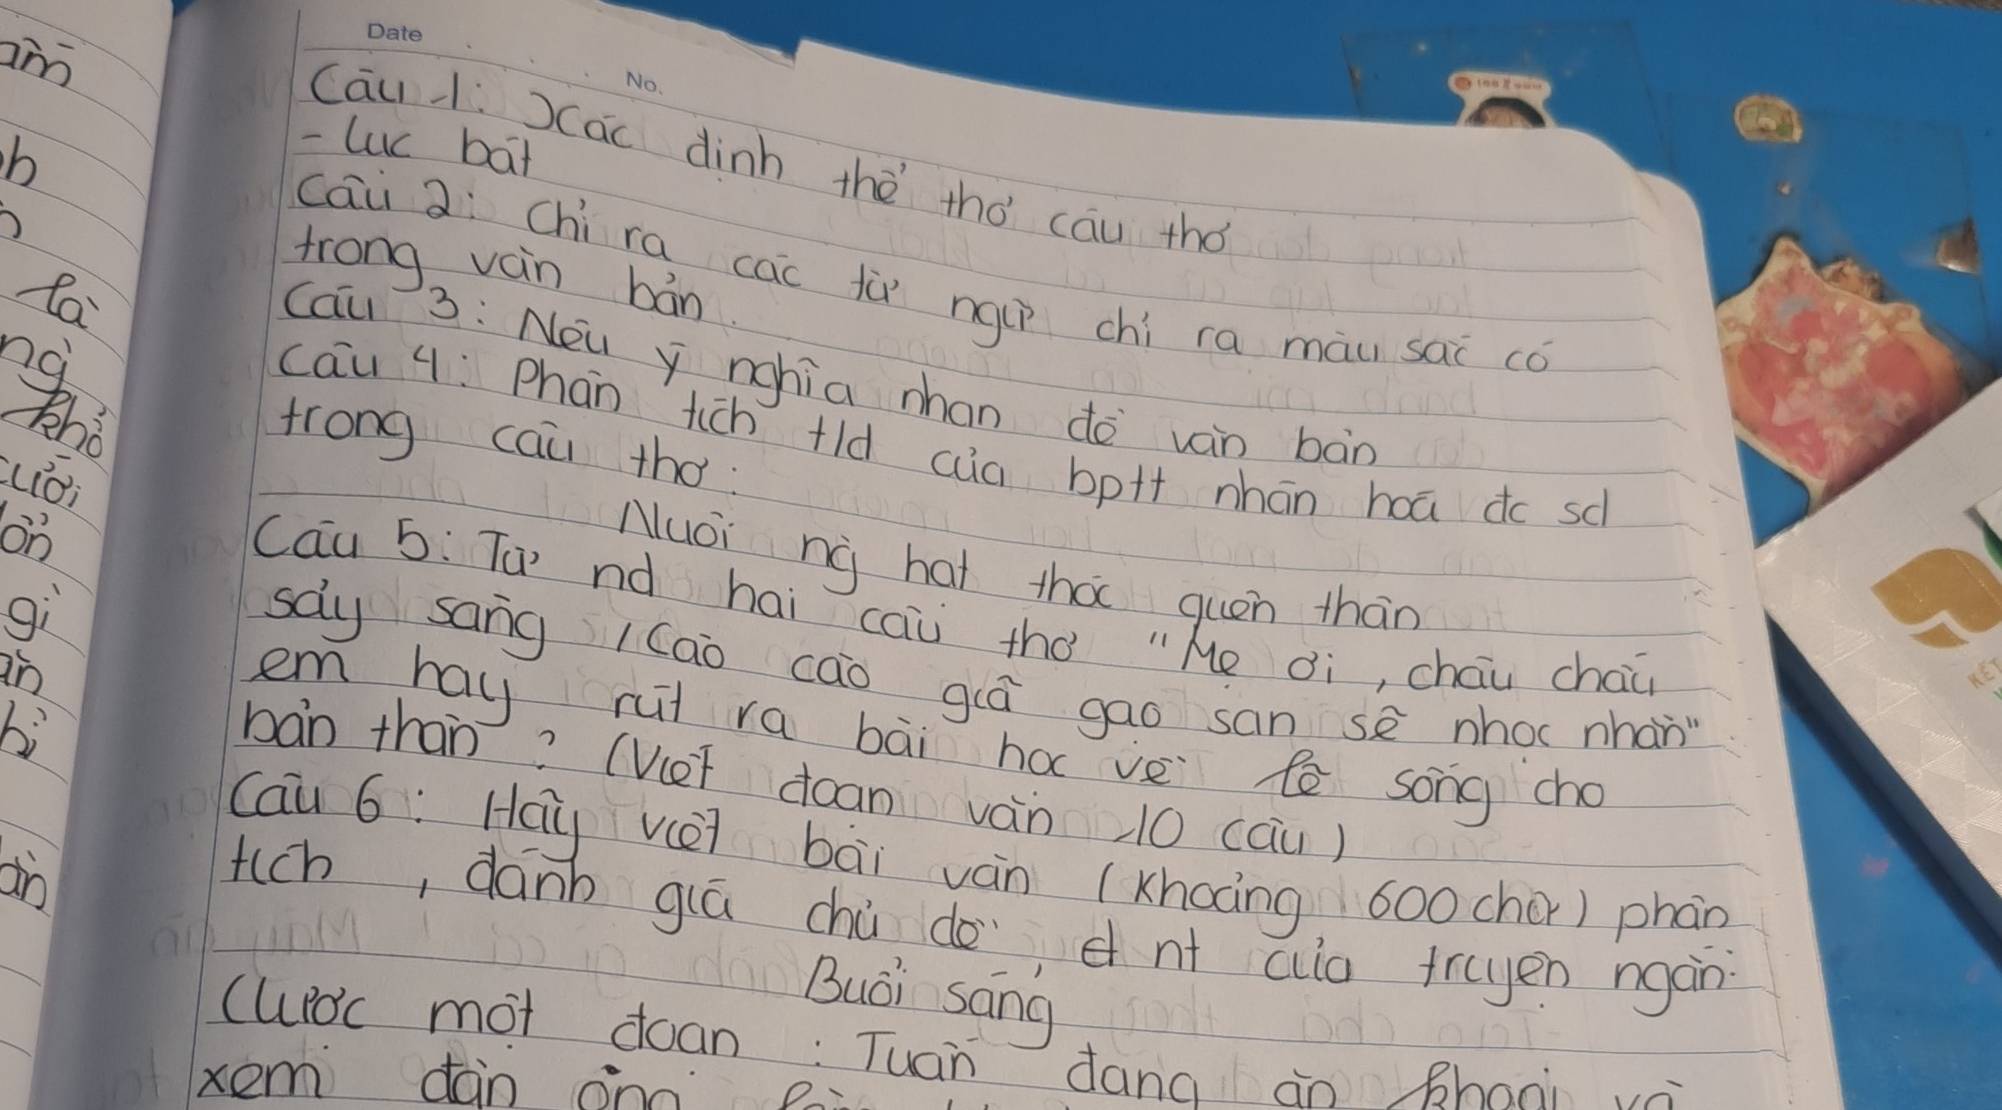 Date
No.
Câu 1: Xác định thể thơ câu thơ
- lục bát
Câu 2: Chỉ ra các từ ngữ chỉ ra màu sắc có
trong văn bản.
Câu 3: Nêu ý nghĩa nhan đề văn bản
Câu 4: Phân tích t/d của bptt nhân hoá đc sd
trong câu thơ:
Nuôi ng hạt thóc quen thân
Câu 5: Từ nd hai câu thơ "Mẹ ơi, cháu cháu
sảy sàng / Cào cào giã gạo sân sẽ nhọc nhằn"
em hãy rút ra bài học về lẽ sống cho
bản thân? (Viết đoạn văn 10 câu)
Câu 6: Hãy viết bài văn (khoảng 600 chữ) phân
tích, đánh giá chủ đề, đ nt của truyện ngắn:
Buổi sáng
(Lược một đoạn: Tuấn đang ăn khoai và
xem đàn ông
là
ng
khỏ
cười
ổn
gì